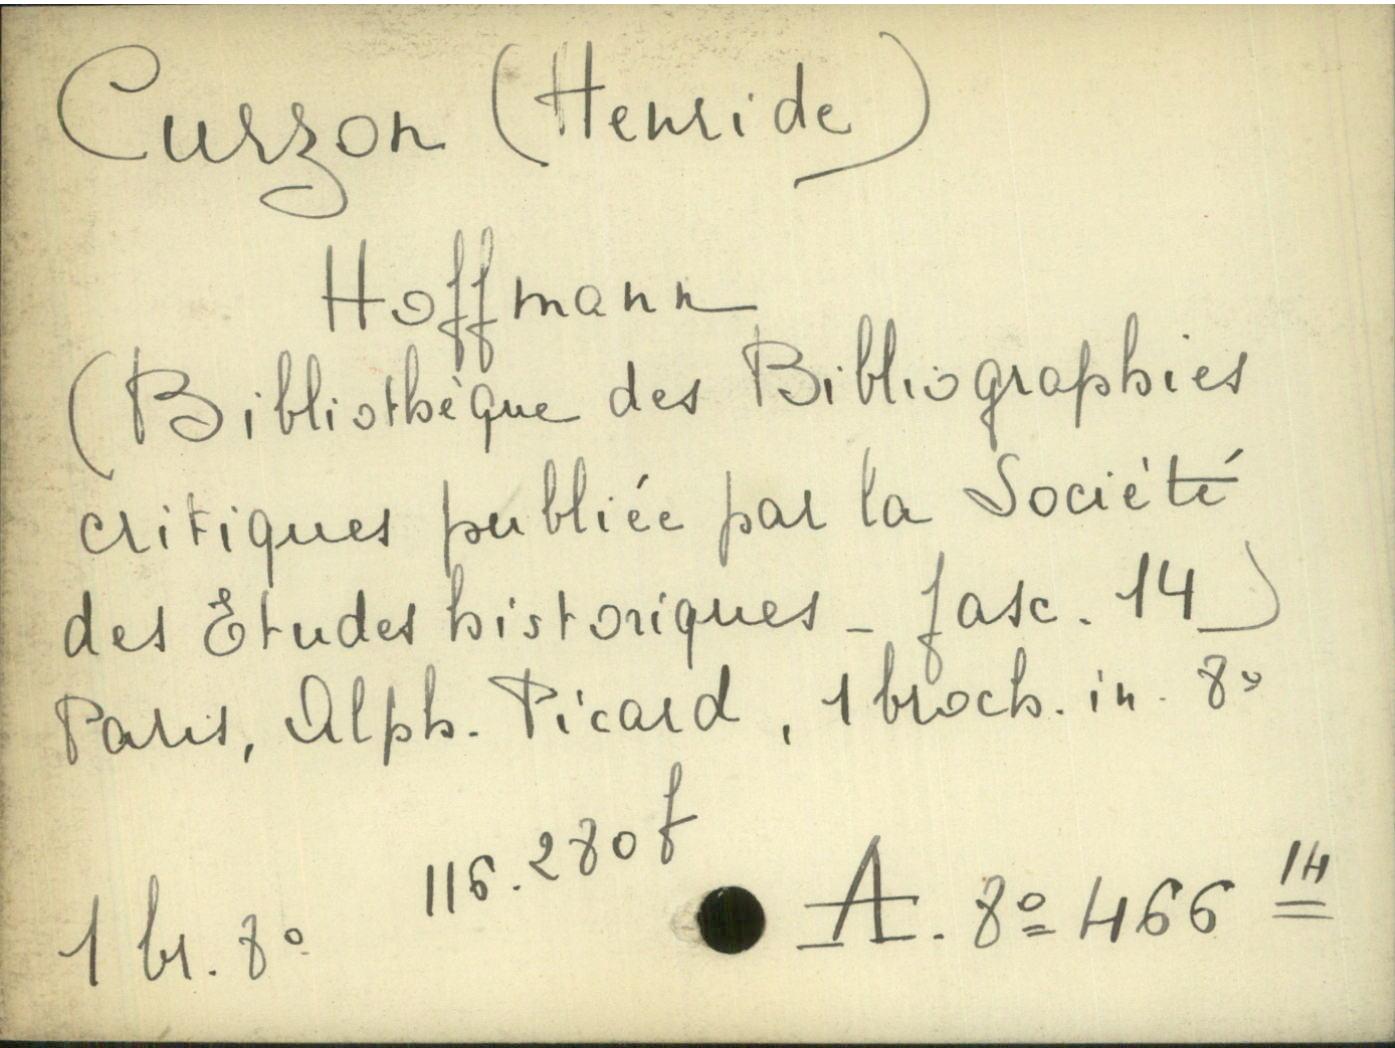 Curzon (Henri de)
Hoffmann
(Bibliothèque des Bibliographies
critiques publiée par la Société
des Etudes historiques - fasc. 14)
Paris, Alph. Picard, 1 broch. in. 8º
116.280 f
1 br. 8º A. 8º 466 14